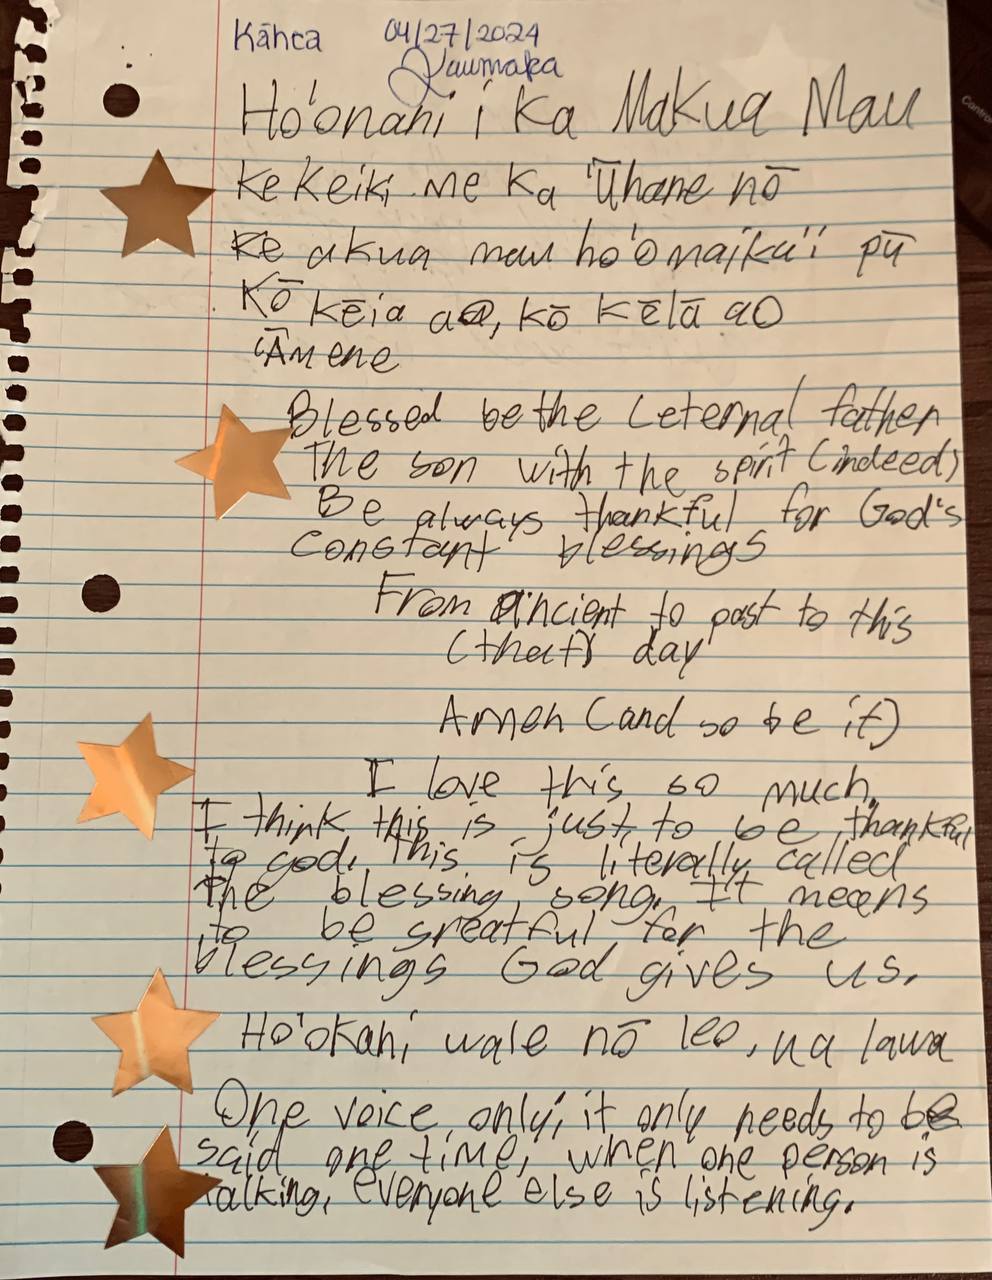 Kāhea 04/27/2024
Laumaka
Ho'onani i Ka Makua Mau
Ke Keiki me Ka 'Ūhane nō
Ke akua mau ho'omaika'i pū
Kō kēia ao, kō kēlā ao
'Āmene
Blessed be the (eternal father
The son with the spirit (indeed)
Be always thankful for God's
constant blessings
From ancient to past to this
(that) day
Amen (and so be it)
I love this so much.
I think this is just to be thankful
to god. This is literally called
The blessing song. It means
to be greatful for the
blessings God gives us.
Ho'okahi wale nō leo, ua lawa
One voice only, it only needs to be
said one time, when one person is
talking, everyone else is listening.